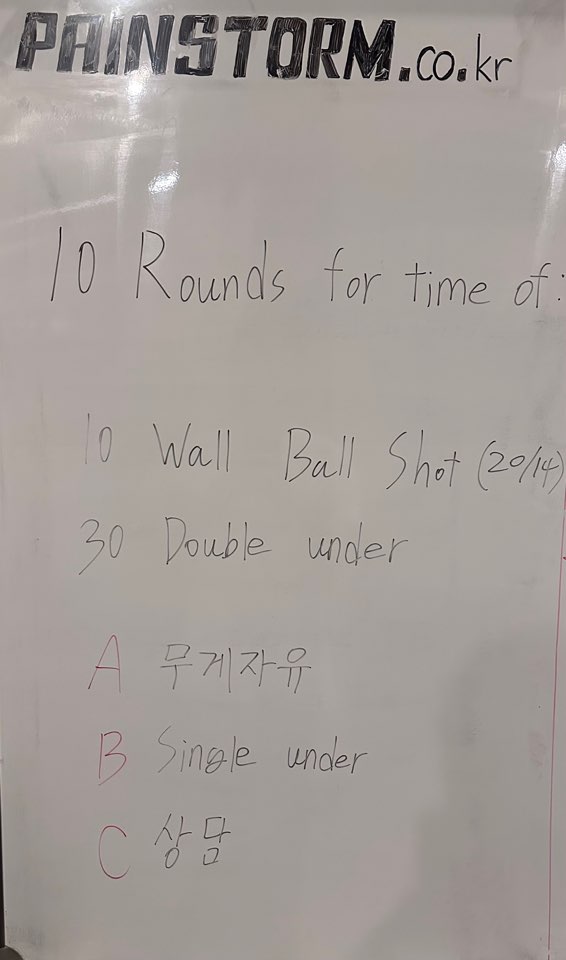 PAINSTORM.co.kr
10 Rounds for time of:
10 Wall Ball Shot (20/14)
30 Double under
A 무게자유
B Single under
C 상담